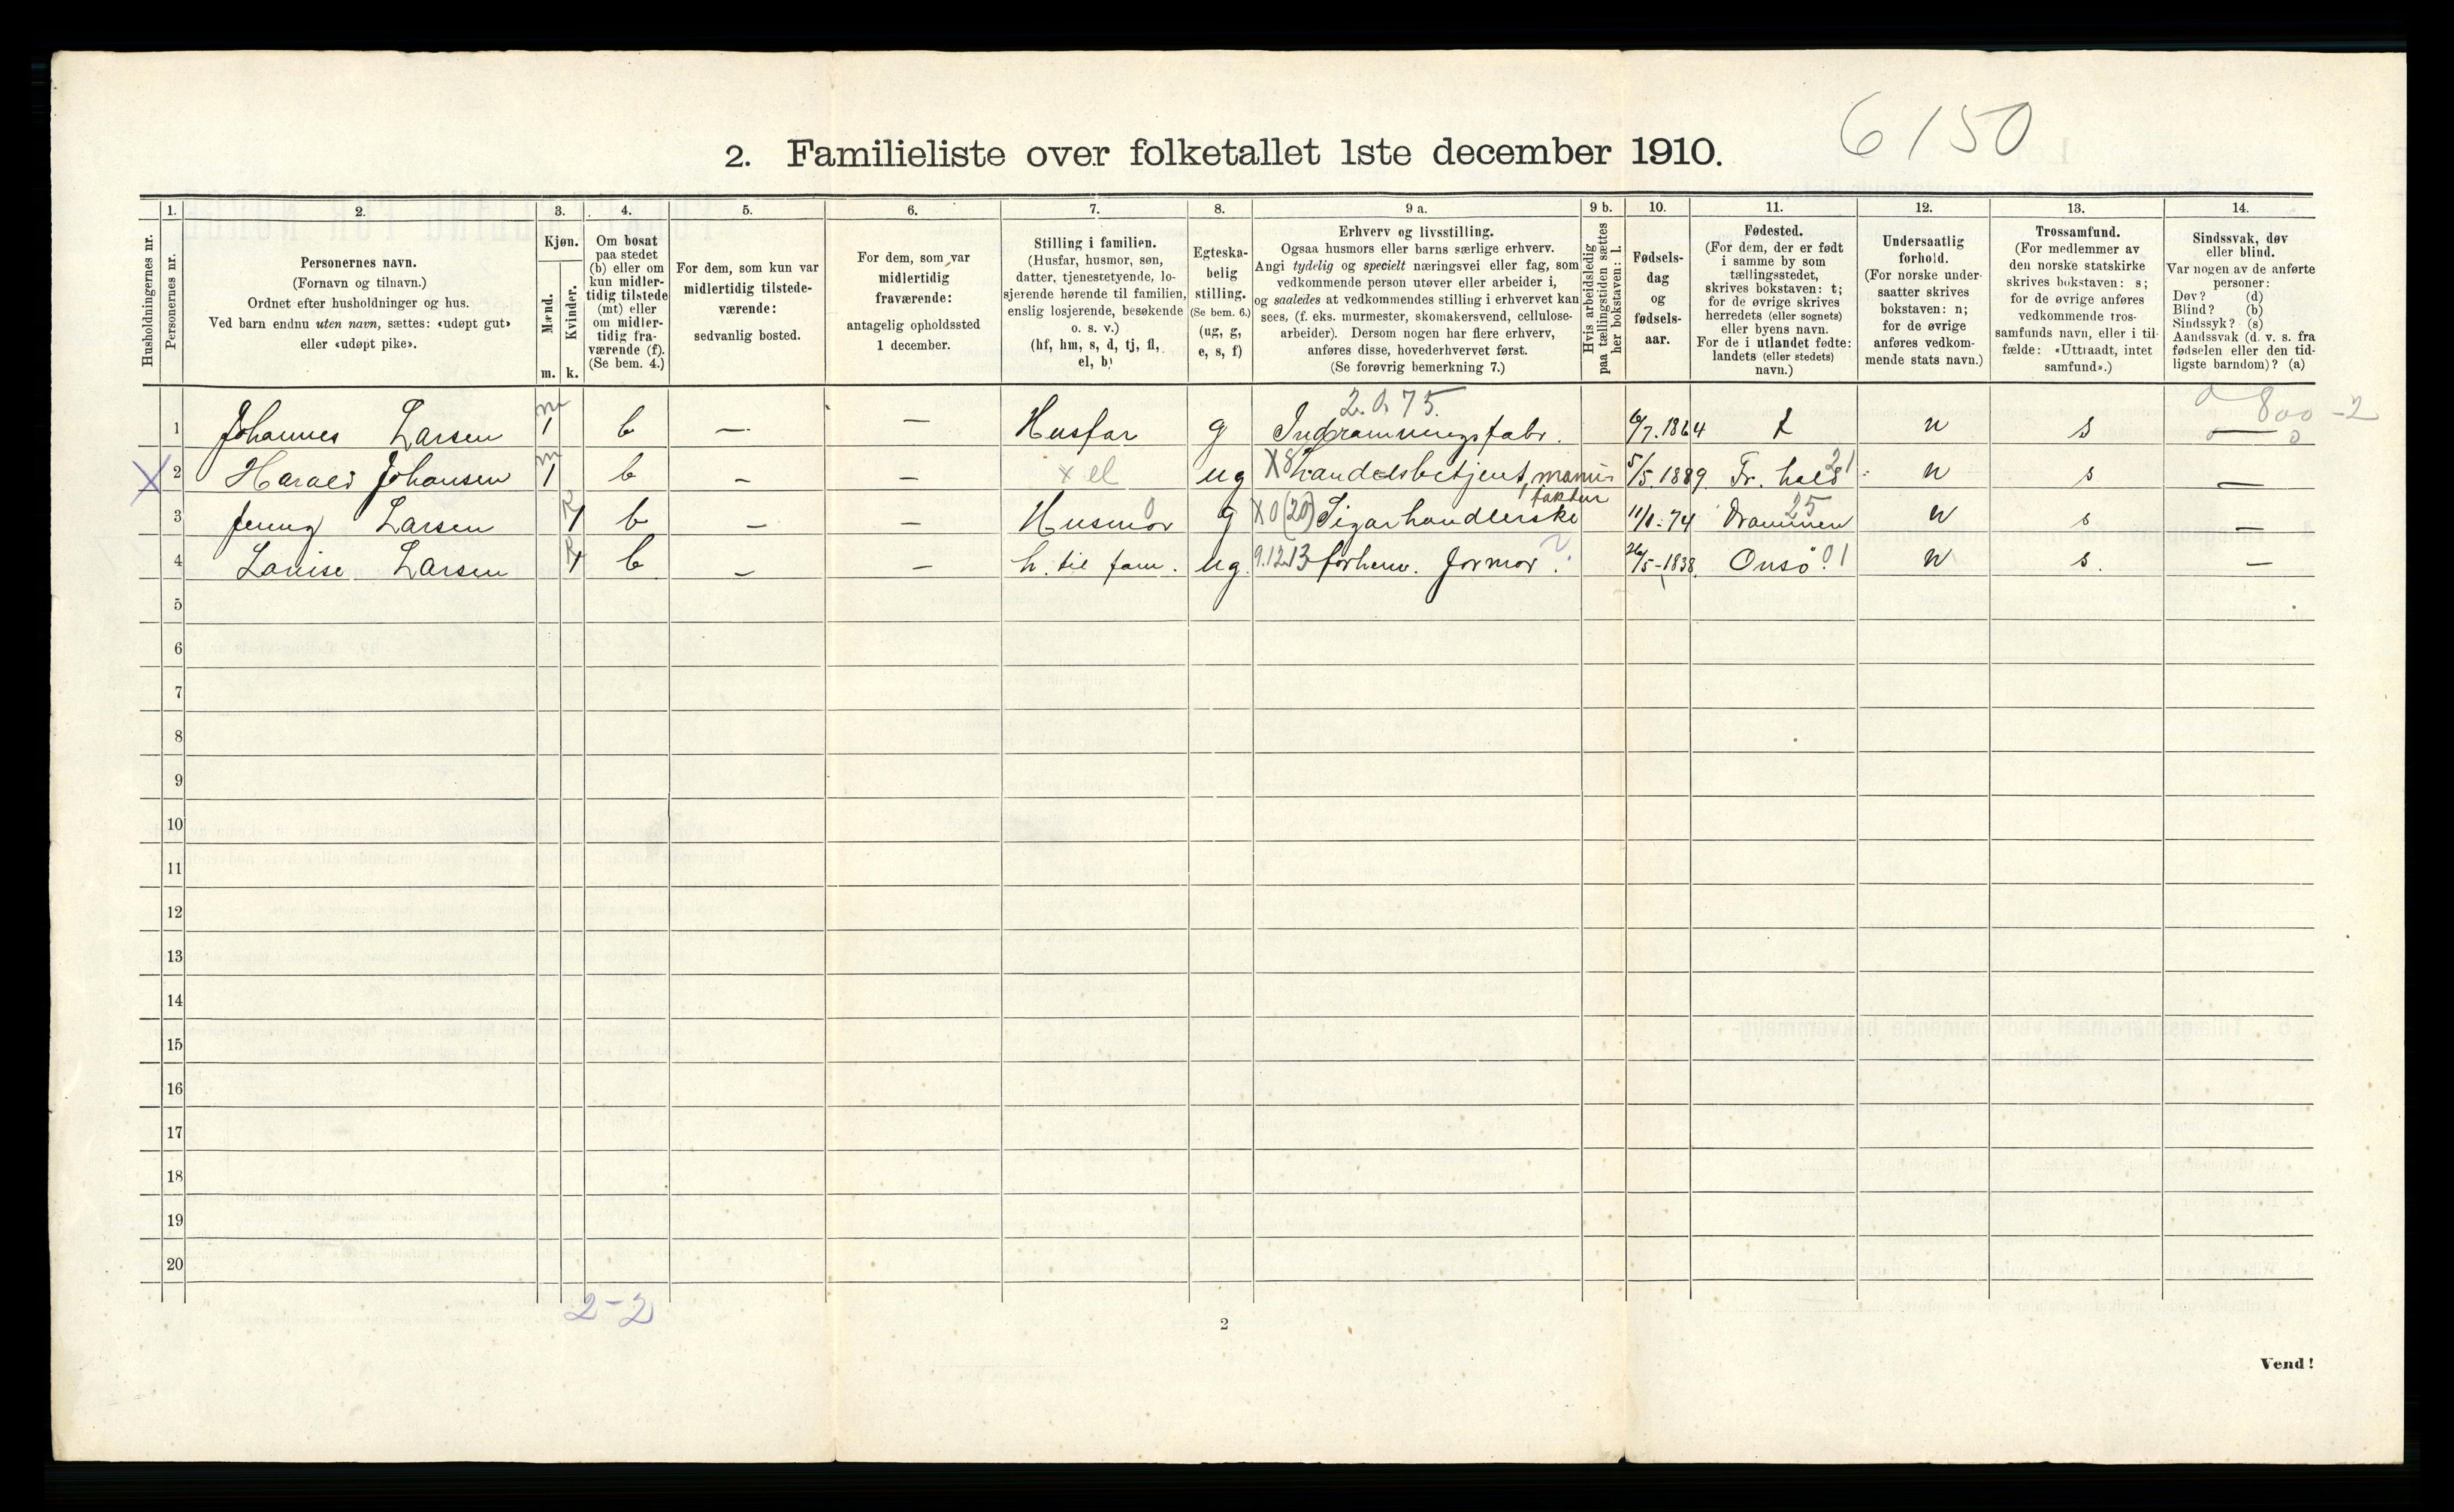 6150
2. Familieliste over folketallet 1ste december 1910.
1. 2. 3. 4. 5. 6. 7. 8. 9 a. 9 b. 10. 11. 12. 13. 14.
Husholdningernes nr.
Personernes nr.
Personernes navn.
(Fornavn og tilnavn.)
Ordnet efter husholdninger og hus.
Ved barn endnu uten navn, sættes: «udøpt gut»
eller «udøpt pike».
Kjøn.
Mænd.
Kvinder.
m. k.
Om bosat
paa stedet
(b) eller om
kun midler-
tidig tilstede
(mt) eller
om midler-
tidig fra-
værende (f).
(Se bem. 4.)
For dem, som kun var
midlertidig tilstede-
værende:
sedvanlig bosted.
For dem, som var
midlertidig
fraværende:
antagelig opholdssted
1 december.
Stilling i familien.
(Husfar, husmor, søn,
datter, tjenestetyende, lo-
sjerende hørende til familien,
enslig losjerende, besøkende
o. s. v.)
(hf, hm, s, d, tj, fl,
el, b)
Egteska-
belig
stilling.
(Se bem. 6.)
(ug, g,
e, s, f)
Erhverv og livsstilling.
Ogsaa husmors eller barns særlige erhverv.
Angi tydelig og specielt næringsvei eller fag, som
vedkommende person utøver eller arbeider i,
og saaledes at vedkommendes stilling i erhvervet kan
sees, (f. eks. murmester, skomakersvend, cellulose-
arbeider). Dersom nogen har flere erhverv,
anføres disse, hovederhvervet først.
(Se forøvrig bemerkning 7.)
Hvis arbeidsledig
paa tællingstiden sættes
her bokstaven: l.
Fødsels-
dag
og
fødsels-
aar.
Fødested.
(For dem, der er født
i samme by som
tællingsstedet,
skrives bokstaven: t;
for de øvrige skrives
herredets (eller sognets)
eller byens navn.
For de i utlandet fødte:
landets (eller stedets)
navn.)
Undersaatlig
forhold.
(For norske under-
saatter skrives
bokstaven: n;
for de øvrige
anføres vedkom-
mende stats navn.)
Trossamfund.
(For medlemmer av
den norske statskirke
skrives bokstaven: s;
for de øvrige anføres
vedkommende tros-
samfunds navn, eller i til-
fælde: «Uttraadt, intet
samfund».)
Sindssvak, døv
eller blind.
Var nogen av de anførte
personer:
Døv? (d)
Blind? (b)
Sindssyk? (s)
Aandssvak (d. v. s. fra
fødselen eller den tid-
ligste barndom)? (a)
2.0.75. 800-2
1 Johannes Larsen m 1 b — — Husfar g Indramningsfabr. 6/7.1864 t n s —
X 2 Harald Johansen m 1 b – – x el ug X8 handelsbetjent, manu- 5/5.1889 Fr. hald 21 n s —
faktur
3 Jenny Larsen k 1 b – – Husmor 0 g X0(20) Sigarhandlerske 11/1-74 Drammen 25 n s –
4 Lovise Larsen k 1 b – – h. til fam. ug. 9.12.13 forhenv. Jormor. 26/5-1838. Onsö 01 n s. –
5
6
7
8
9
10
11
12
13
14
15
16
17
18
19
20
2-2
2
Vend!